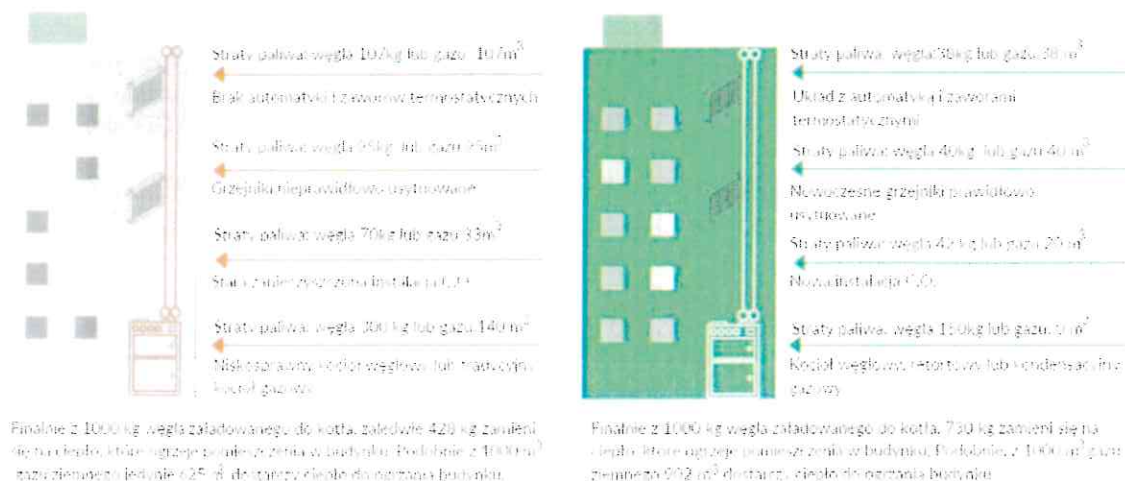 Straty paliwa: węgla 107kg lub gazu 107m³
Brak automatyki i zaworów termostatycznych
Straty paliwa: węgla 95kg lub gazu 95m³
Grzejniki nieprawidłowo usytuowane
Straty paliwa: węgla 70kg lub gazu 33m³
Stara zanieczyszczona instalacja C.O.
Straty paliwa: węgla 300 kg lub gazu 140 m³
Niskosprawny kocioł węglowy lub tradycyjny
kocioł gazowy
Finalnie z 1000 kg węgla załadowanego do kotła, zaledwie 428 kg zamieni
się na ciepło, które ogrzeje pomieszczenia w budynku. Podobnie z 1000 m³
gazu ziemnego jedynie 625 m³ dostarczy ciepło do ogrzania budynku.
Straty paliwa: węgla 38kg lub gazu 38 m³
Układ z automatyką i zaworami
termostatycznymi
Straty paliwa: węgla 40kg lub gazu 40 m³
Nowoczesne grzejniki prawidłowo
usytuowane
Straty paliwa: węgla 42 kg lub gazu 20 m³
Nowa instalacja C.O.
Straty paliwa: węgla 150kg lub gazu 0 m³
Kocioł węglowy, retortowy lub kondensacyjny
gazowy
Finalnie z 1000 kg węgla załadowanego do kotła, 730 kg zamieni się na
ciepło, które ogrzeje pomieszczenia w budynku. Podobnie, z 1000 m³ gazu
ziemnego 902 m³ dostarczy ciepło do ogrzania budynku.